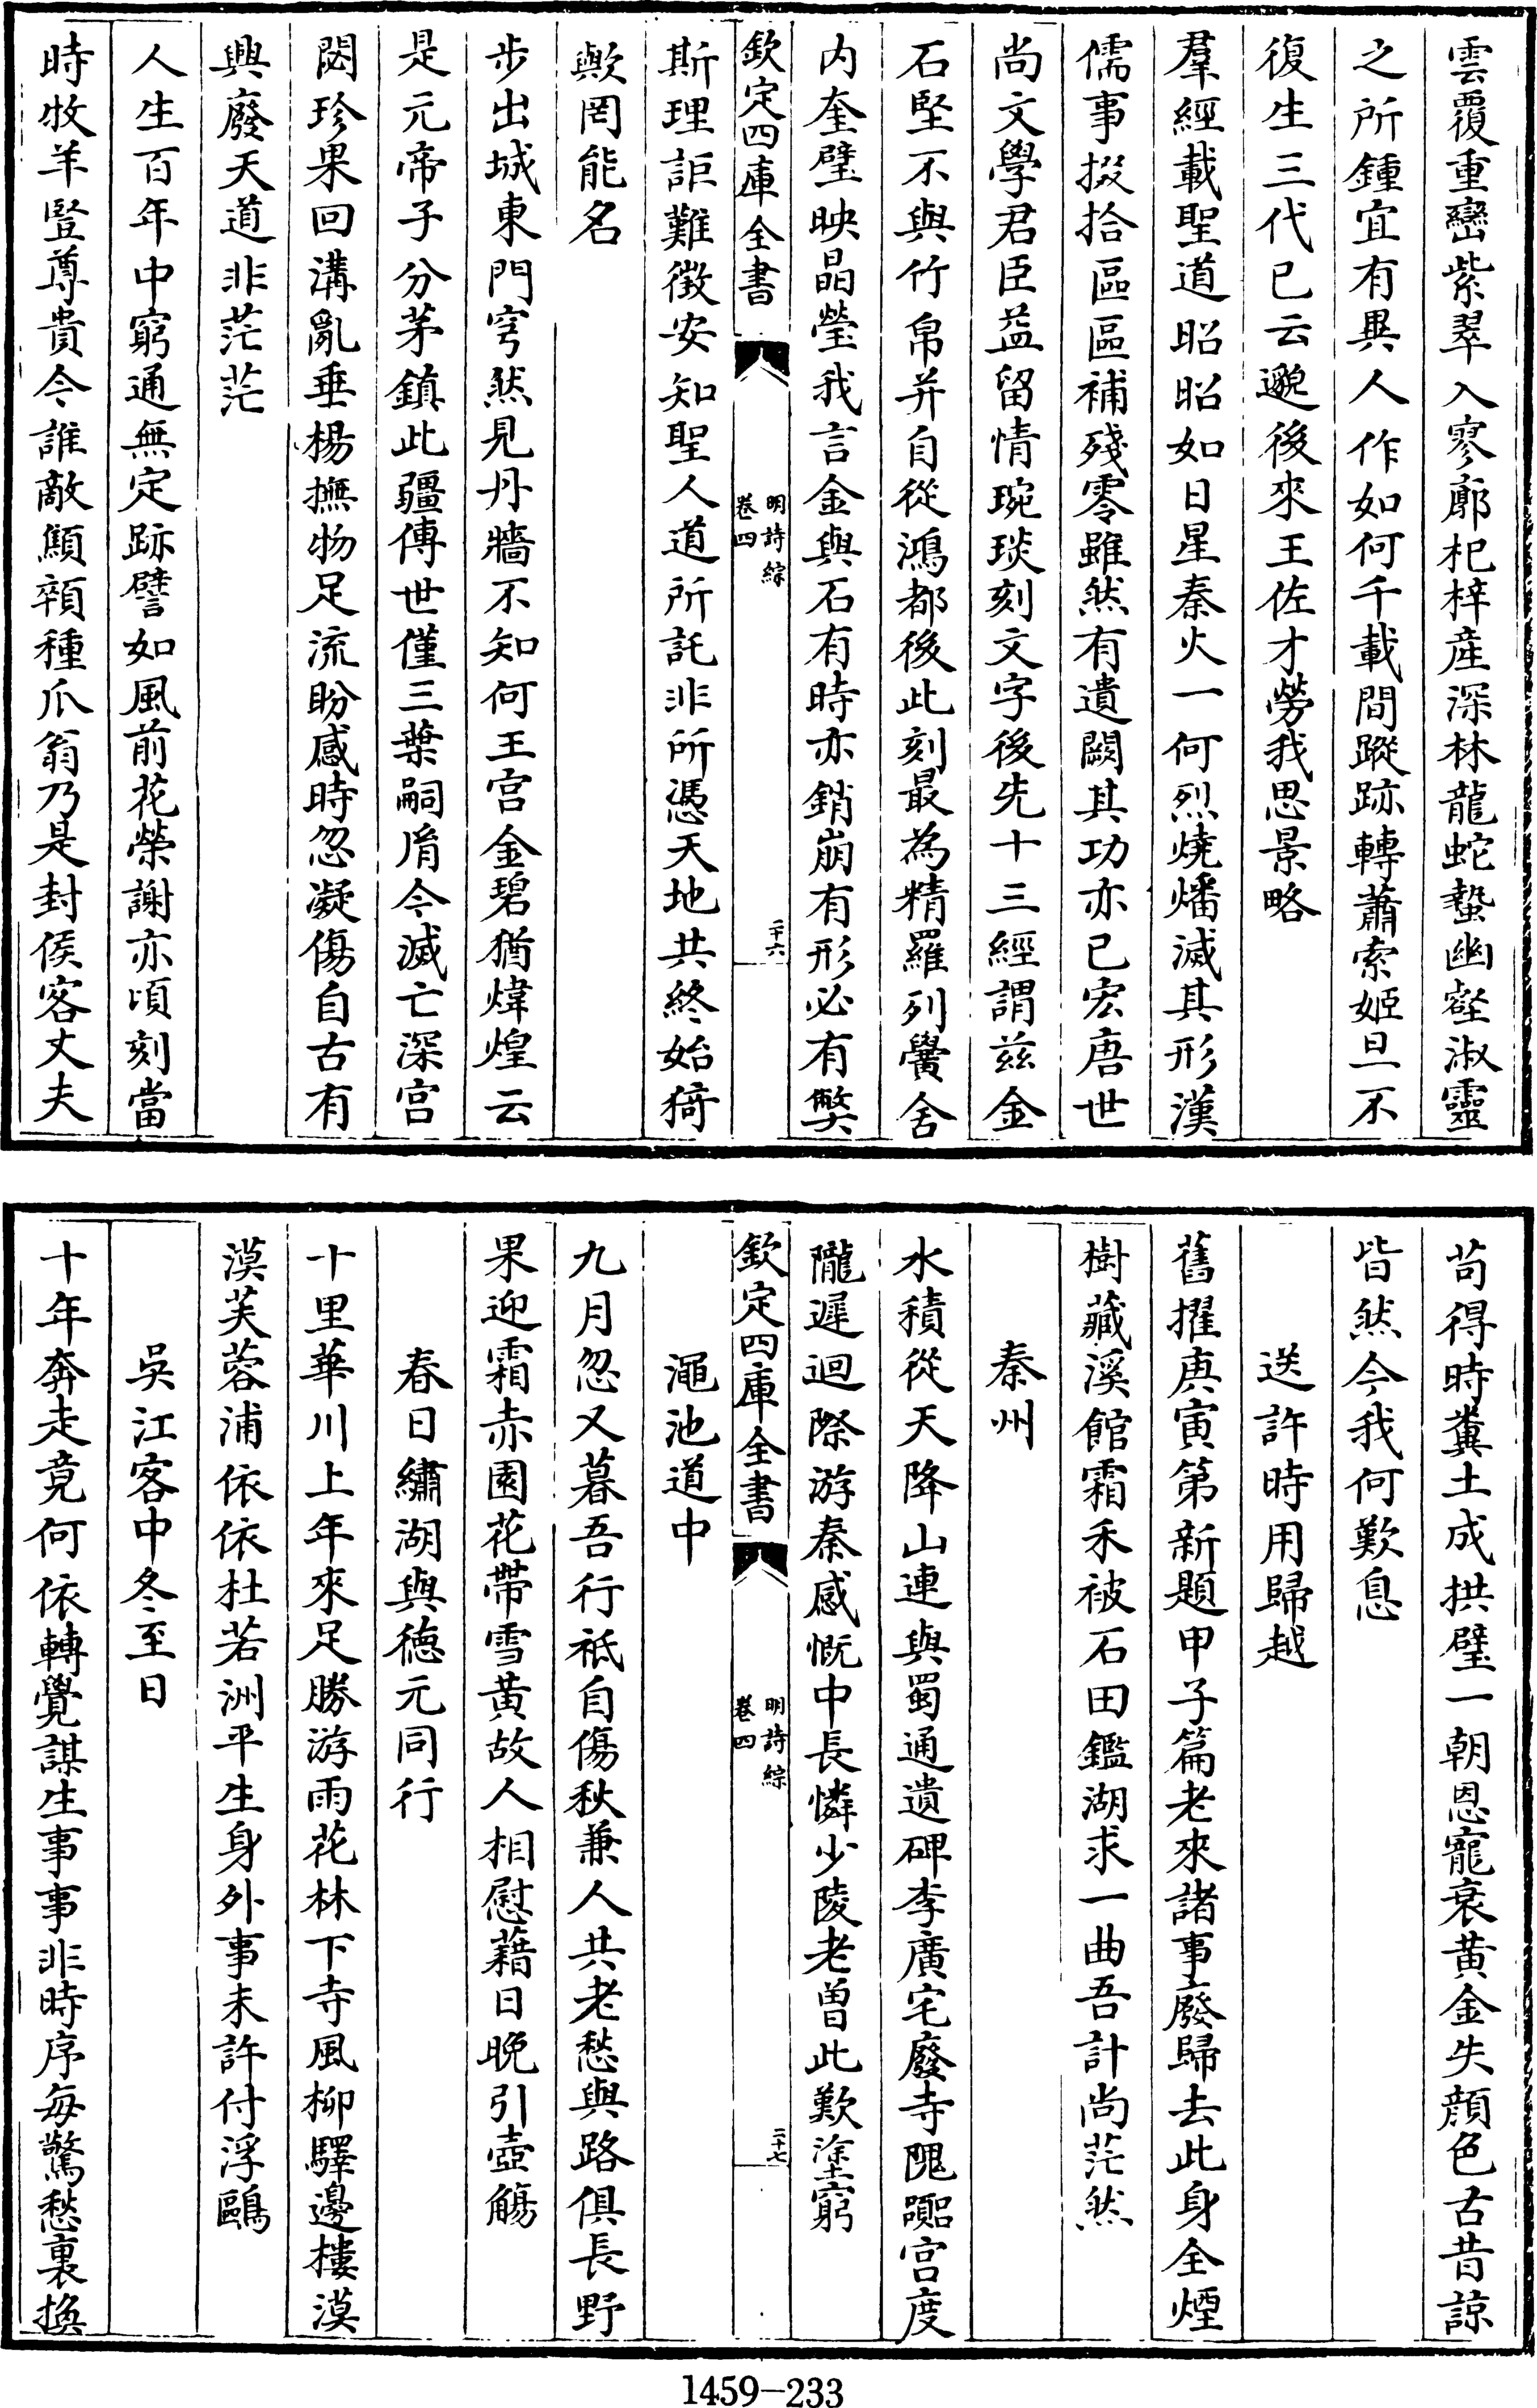 雲覆重巒紫翠入寥廓杞梓產深林龍蛇蟄幽壑淑靈
之所鍾宜有異人作如何千載間蹤跡轉蕭索姬旦不
復生三代已云邈後來王佐才勞我思景略
羣經載聖道昭昭如日星秦火一何烈燒燔滅其形漢
儒事掇拾區區補殘零雖然有遺闕其功亦已宏唐世
尚文學君臣益留情琬琰刻文字後先十三經謂茲金
石堅不與竹帛并自從鴻都後此刻最為精羅列黌舍
内奎璧映晶瑩我言金與石有時亦銷崩有形必有弊
欽定四庫全書
明詩綜
卷四
二十六
斯理詎難徵安知聖人道所託非所憑天地共終始猗
歟罔能名
步出城東門穹然見丹牆不知何王宮金碧猶煒煌云
是元帝子分茅鎮此疆傳世僅三葉嗣胤今滅亡深宮
閟珍果回溝亂垂楊撫物足流盼感時忽凝傷自古有
興廢天道非茫茫
人生百年中窮通無定跡譬如風前花榮謝亦頃刻當
時牧羊豎尊貴今誰敵顦顇種爪翁乃是封侯客丈夫
苟得時糞土成拱璧一朝恩寵衰黄金失顔色古昔諒
皆然今我何歎息
送許時用歸越
舊擢庚寅第新題甲子篇老來諸事廢歸去此身全煙
樹藏溪館霜禾被石田鑑湖求一曲吾計尚茫然
秦州
水積從天降山連與蜀通遺碑李廣宅廢寺隗嚻宮度
隴遲迴際游秦感慨中長憐少陵老曽此歎塗窮
欽定四庫全書
明詩綜
卷四
二十七
澠池道中
九月忽又暮吾行祇自傷秋兼人共老愁與路俱長野
果迎霜赤園花帶雪黄故人相慰藉日晚引壺觴
春日繡湖與德元同行
十里華川上年來足勝游雨花林下寺風柳驛邊樓漠
漠芙蓉浦依依杜若洲平生身外事未許付浮鷗
吳江客中冬至日
十年奔走竟何依轉覺謀生事事非時序每驚愁裏換
1459-233